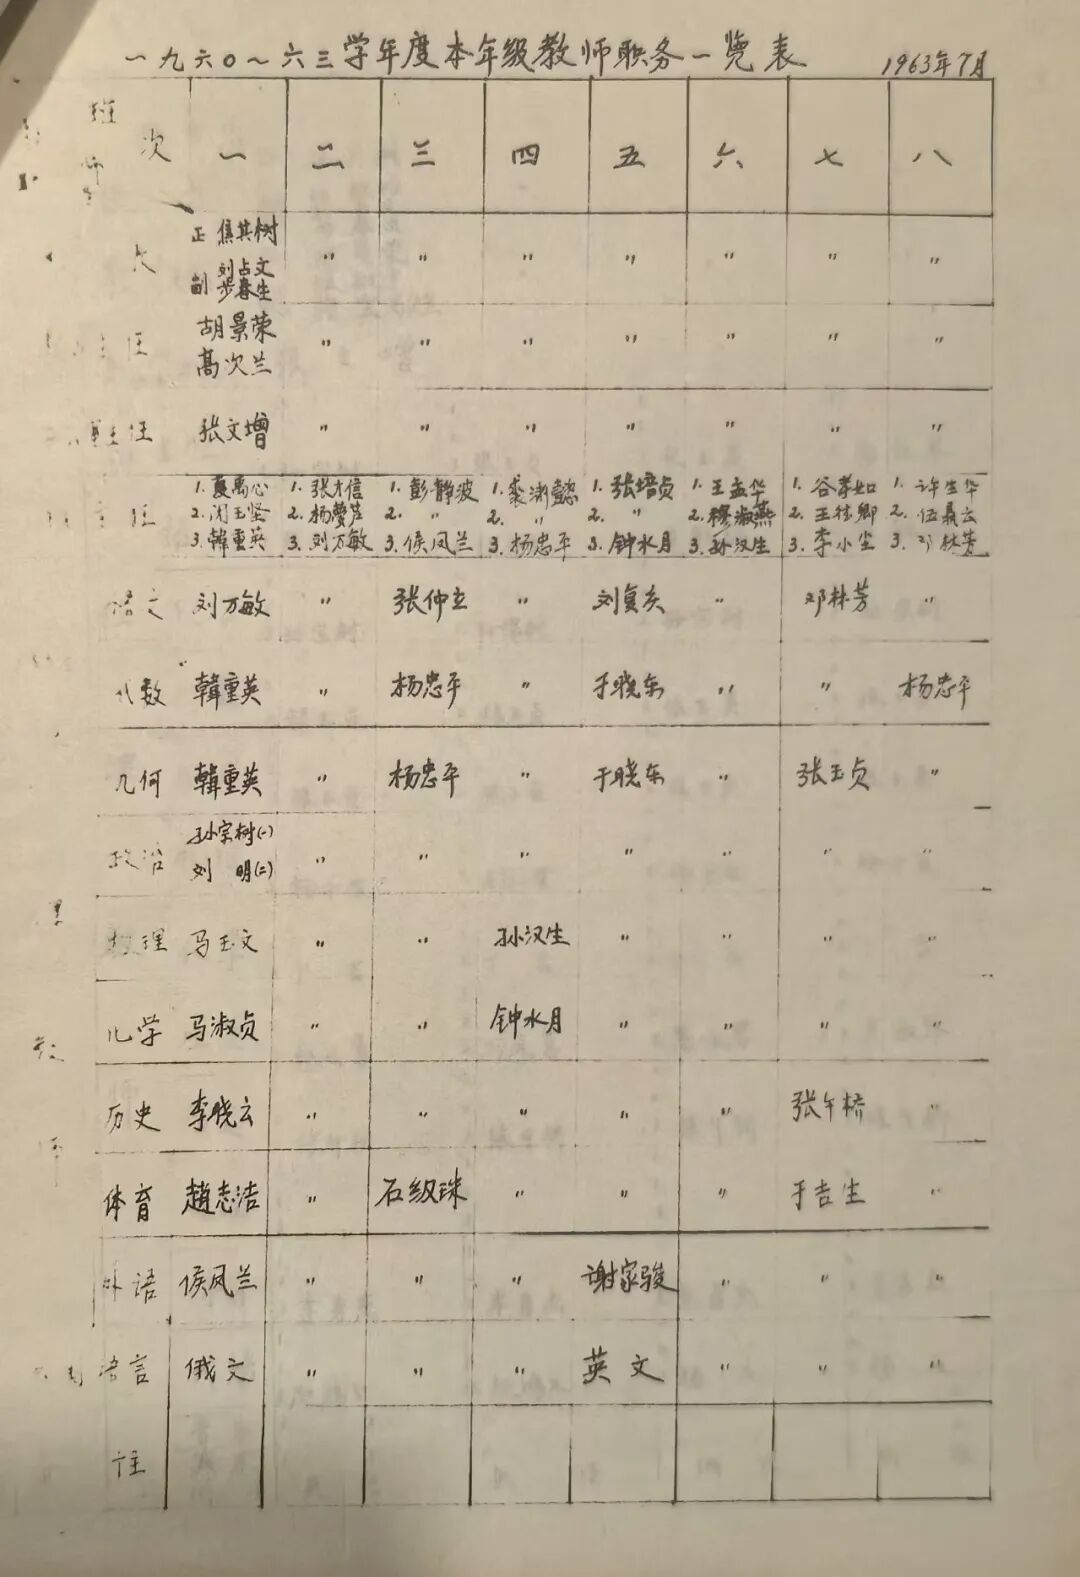 一九六〇~六三学年度本年级教师职务一览表 1963年7月
班
次 一 二 三 四 五 六 七 八
师
正 焦其树 〃 〃 〃 〃 〃 〃 〃
副 刘占文
步春生
胡景荣 〃 〃 〃 〃 〃 〃 〃
高次兰
主任 张文增 〃 〃 〃 〃 〃 〃 〃
1. 夏禹心 1. 张才信 1. 彭静波 1. 裘淑懿 1. 张培贞 1. 王孟华 1. 谷孝如 1. 许生华
2. 闭玉坚 2. 杨萝芹 2. 〃 2. 〃 2. 〃 2. 穆淑燕 2. 王桂卿 2. 伍鼎云
3. 韩重英 3. 刘万敏 3. 侯凤兰 3. 杨忠平 3. 钟水月 3. 孙汉生 3. 李小尘 3. 邓林芳
语文 刘万敏 〃 张仲立 〃 刘复炎 〃 邓林芳 〃
代数 韩重英 〃 杨忠平 〃 于晓东 〃 〃 杨忠平
几何 韩重英 〃 杨忠平 〃 于晓东 〃 张玉贞 〃
孙宗树(一)
政治 刘 明(二) 〃 〃 〃 〃 〃 〃 〃
物理 马玉文 〃 〃 孙汉生 〃 〃 〃 〃
化学 马淑贞 〃 〃 钟水月 〃 〃 〃 〃
历史 李晓云 〃 〃 〃 〃 〃 张午桥 〃
体育 趙志洁 〃 石级珠 〃 〃 〃 于吉生 〃
外语 侯凤兰 〃 〃 〃 谢家骏 〃 〃 〃
语言 俄文 〃 〃 〃 英文 〃 〃 〃
注
教
师